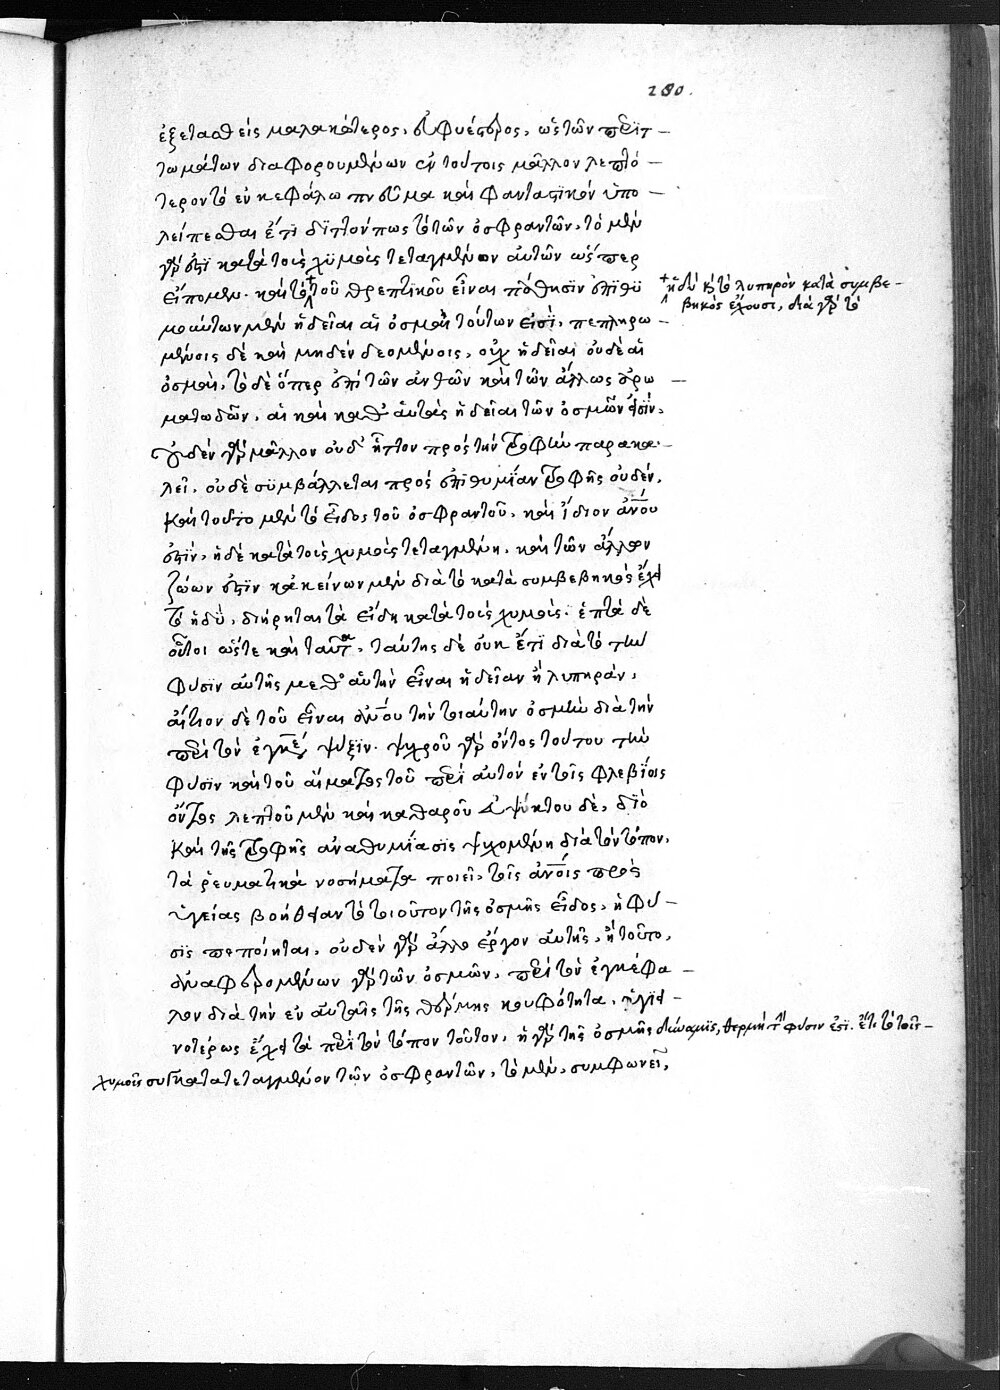 280.
ἐξετασθείς μαλακώτερος, εὐφυέστερος, ὡς τῶν περιτ
τωμάτων διαφορουμένων ἐν τούτοις μᾶλλον λεπτό
τερον τὸ ἐν κεφάλω πνεῦμα καὶ φανταστικόν ὑπο
λείπεσθαι ἔτι διττόν πως τὸ τῶν ὀσφραντῶν, τὸ μὲν
γάρ ἐστι κατὰ τοὺς χυμοὺς τεταγμένον αὐτῶν ὥσπερ
εἴπομεν. καὶ τὸ τοῦ θρεπτικοῦ εἶναι πάθησιν ἐπιθυ
+ ἡδύ καὶ τὸ λυπηρὸν κατὰ συμβε-
βηκός ἔχουσι, διὰ γάρ τὸ
μούντων μὲν ἡδεῖαι αἱ ὀσμαὶ τούτων εἰσὶ, πεπληρω
μένοις δὲ καὶ μηδέν δεομένοις, οὐχ ἡδεῖαι οὐδὲ αἱ
ὀσμαὶ, τὸ δὲ ὅπερ ἐπὶ τῶν ἀνθῶν καὶ τῶν ἄλλως ἀρω
ματωδῶν, αἱ καὶ καθ' αὑτὰς ἡδεῖαι τῶν ὀσμῶν εἰσίν,
οὐδέν γάρ μᾶλλον οὐδ' ἧττον πρός τὴν τροφὴν παρακα
λεῖ, οὐδὲ συμβάλλεται πρός ἐπιθυμίαν τροφῆς οὐδέν,
καὶ τοῦτο μὲν τὸ εἶδος τοῦ ὀσφραντοῦ, καὶ ἴδιον ἀν̅ου
ἐστίν, ἡ δὲ κατὰ τοὺς χυμοὺς τεταγμένη, καὶ τῶν ἄλλων
ζώων ἐστὶν κἀκείνων μὲν διὰ τὸ κατὰ συμβεβηκός ἔχειν
τὸ ἡδὺ, διήρηται τὰ εἴδη κατὰ τοὺς χυμούς. ἑπτὰ δὲ
οὗτοι ὥστε καὶ ταῦτα, ταύτης δὲ οὐκ ἔτι διὰ τὸ τὴν
φύσιν αὐτῆς μεθ' αὑτὴν εἶναι ἡδεῖαν ἢ λυπηράν,
αἴτιον δὲ τοῦ εἶναι ἀν̅ου τὴν τοιαύτην ὀσμὴν διὰ τὴν
περὶ τὸν ἐγκέφ ψύξιν. ψυχροῦ γάρ ὄντος τούτου τὴν
φύσιν καὶ τοῦ αἵματος τοῦ περὶ αὐτόν ἐν τοῖς φλεβίοις
ὄντος λεπτοῦ μὲν καὶ καθαροῦ εὐψύκτου δὲ, διὸ
καὶ τῆς τροφῆς ἀναθυμίασις ψυχομένη διὰ τὸν τόπον,
τὰ ῥευματικὰ νοσήματα ποιεῖ, τοῖς ἀν̅οις πρὸς
ὑγείας βοήθειαν τὸ τοιοῦτον τῆς ὀσμῆς εἶδος, ἡ φύ
σις πεποίηται, οὐδέν γάρ ἄλλο ἔργον αὐτῆς, ἢ τοῦτο,
ἀναφερομένων γάρ τῶν ὀσμῶν, περὶ τὸν ἐγκέφα
λον διὰ τὴν ἐν αὐταῖς τῆς θέρμης κουφότητα, ὑγιει
νοτέρως ἔχει τὰ περὶ τὸν τόπον τοῦτον, ἡ γάρ τῆς ὀσμῆς δύναμις, θερμὴ τὴν φύσιν ἐστί. ἔτι τὸ τοῖς
χυμοῖς συγκατατεταγμένον τῶν ὀσφραντῶν, τὸ μὲν, συμφωνεῖ,